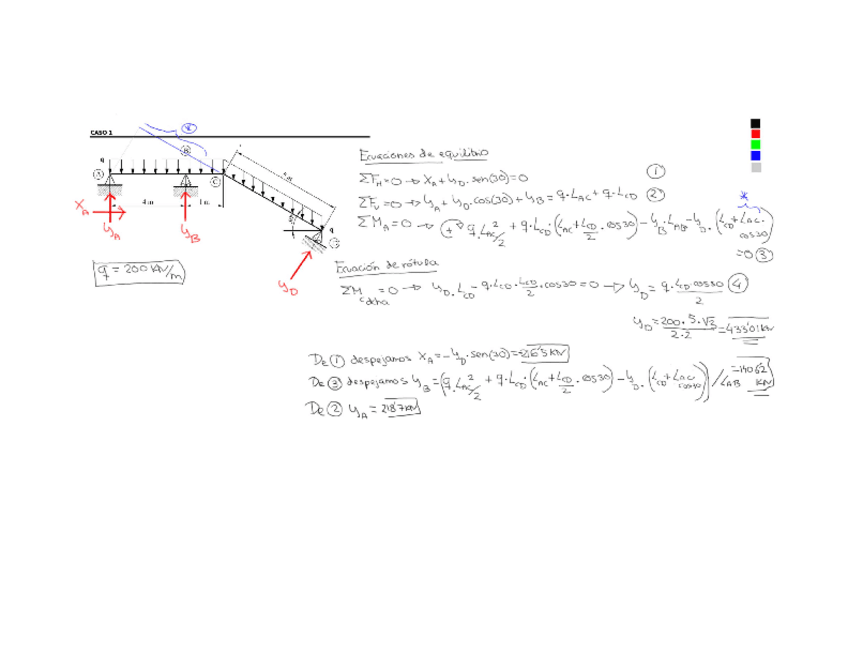 CASO 1
*
q
A
B
C
4 m
1 m
5 m
q
X_A
Y_A
Y_B
Y_D
q = 200 KN/m
Ecuaciones de equilibrio
ΣF_H = 0 → X_A + Y_D . sen(30) = 0 ①
ΣF_V = 0 → Y_A + Y_D . cos(30) + Y_B = q . L_AC + q . L_CD ②
ΣM_A = 0 → (+) q . L_AC²/2 + q . L_CD . (L_AC + L_CD/2 . cos30) - Y_B . L_AB - Y_D . (L_CD + L_AC . cos30) = 0 ③
*
Ecuación de rótula
ΣM_C dcha = 0 → Y_D . L_CD - q . L_CD . L_CD/2 . cos30 = 0 → Y_D = q . L_CD cos30/2 ④
Y_D = 200 . 5 . √3/2.2 = 433'01 KN
De ① despejamos X_A = - Y_D . sen(30) =
De ③ despejamos Y_B = (q . L_AC²/2 + q . L_CD . (L_AC + L_CD/2 . cos30) - Y_D . (L_CD + L_AC cos30)) / L_AB = KN
De ② Y_A =